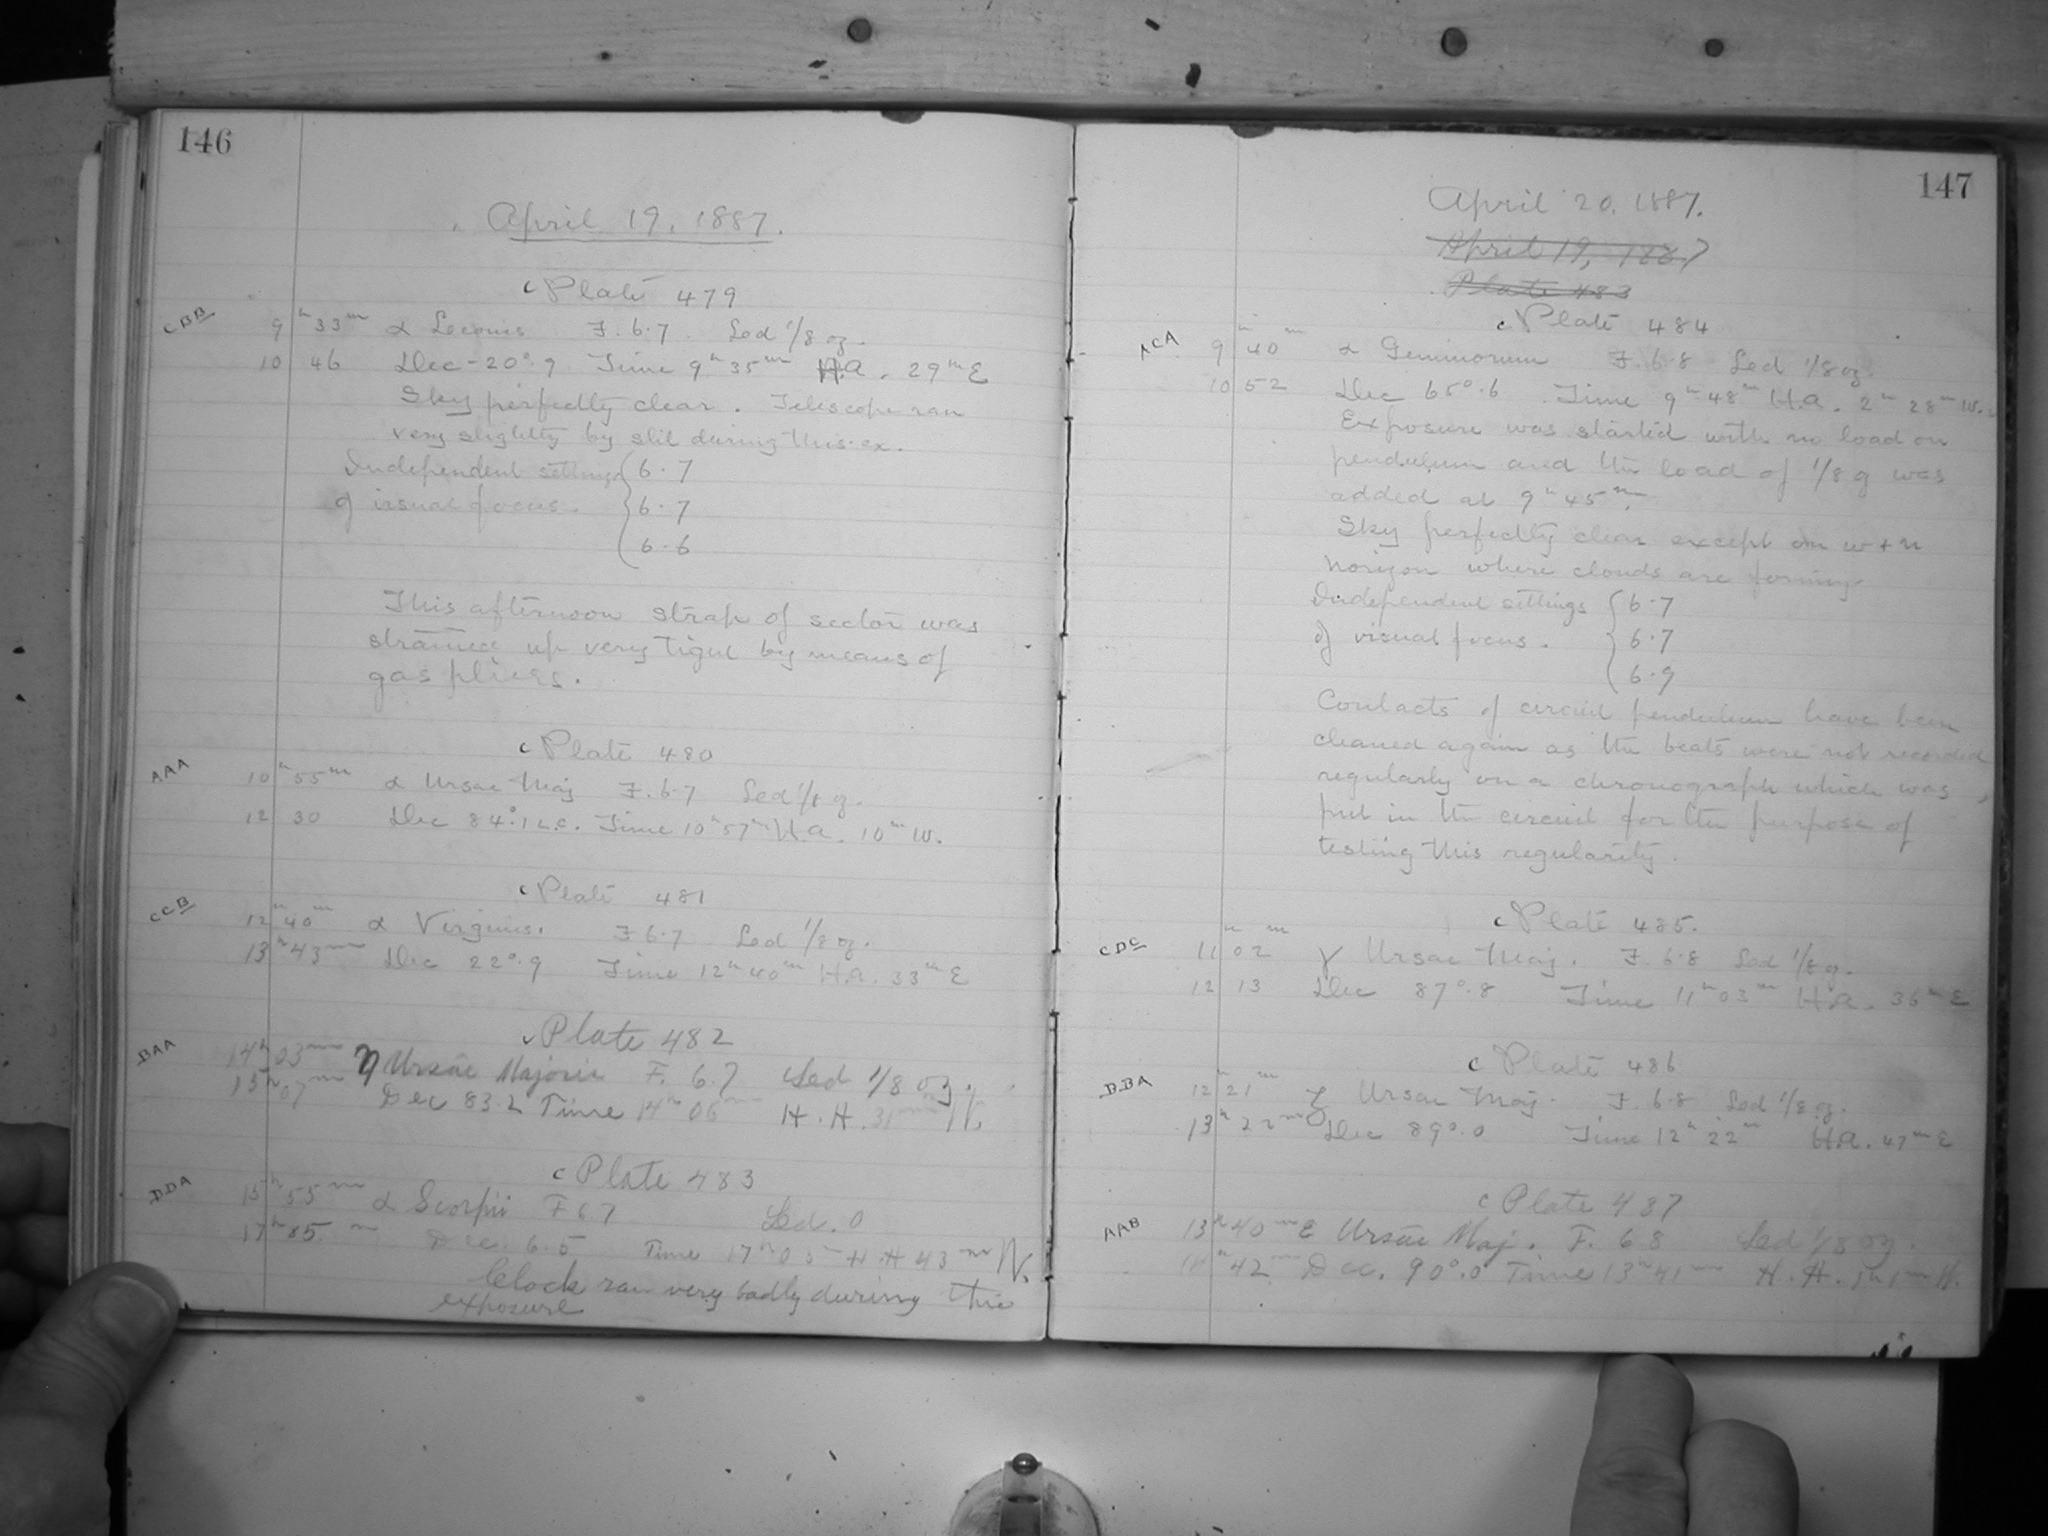 146
April 19, 1887.
c Plate 479
CBB
9 h 33 m α Leonis F. 6.7. Led 1/8 oz.
10 46 Dec -20°.9 Time 9 h 35 m H.A. 29 m E
Sky perfectly clear. Telescope ran
very slightly by slit during this ex.
Independent settings 6.7
of visual focus. 6.7
6.6
This afternoon strap of sector was
strained up very tight by means of
gas pliers.
c Plate 480
AAA
10 h 55 m α Ursae Maj F. 6.7 Led 1/8 oz.
12 30 Dec 84°.1 L.C. Time 10 h 57 m H.A. 10 m W.
c Plate 481
CCB
12 h 40 m α Virginis. F 6.7 Led 1/8 oz.
13 h 43 m Dec 22°.9 Time 12 h 40 m H.A. 33 m E
c Plate 482
BAA
14 h 03 m η Ursae Majoris F. 6.7 Led 1/8 oz.
15 h 07 m Dec 83.2 Time 14 h 06 m H.A. 31 m W.
c Plate 483
DDA
15 h 55 m α Scorpii F 6.7 Led. 0
17 h 85 m Dec. 6.5 Time 17 h 05 H A 43 m W.
Clock ran very badly during this
exposure
147
April 20, 1887.
April 19, 1887
Plate 483
c Plate 484
ACA
9 h 40 m α Geminorum F. 6.8 Led 1/8 oz.
10 52 Dec 65°.6 Time 9 h 48 m H.A. 2 h 28 m W.
Exposure was started with no load on
pendulum and the load of 1/8 g was
added at 9 h 45 m.
Sky perfectly clear except on w + n
horizon where clouds are forming.
Independent settings 6.7
of visual focus. 6.7
6.9
Contacts of circuit pendulum have been
cleaned again as the beats were not recorded
regularly on a chronograph which was
put in the circuit for the purpose of
testing this regularity.
c Plate 485.
CDC
11 h 02 m γ Ursae Maj. F. 6.8 Led 1/8 oz.
12 13 Dec 87°.8 Time 11 h 03 m H.A. 36 m E
c Plate 486
BBA
12 h 21 m Ursae Maj. F. 6.8 Led 1/8 oz.
13 h 22 m Dec 89°.0 Time 12 h 22 m H.A. 47 m E
c Plate 487
AAB
13 h 40 m ε Ursae Maj. F. 6.8 Led 1/8 oz.
42 m Dec. 90°.0 Time 13 h 41 m H.A. 1 h 1 m W.